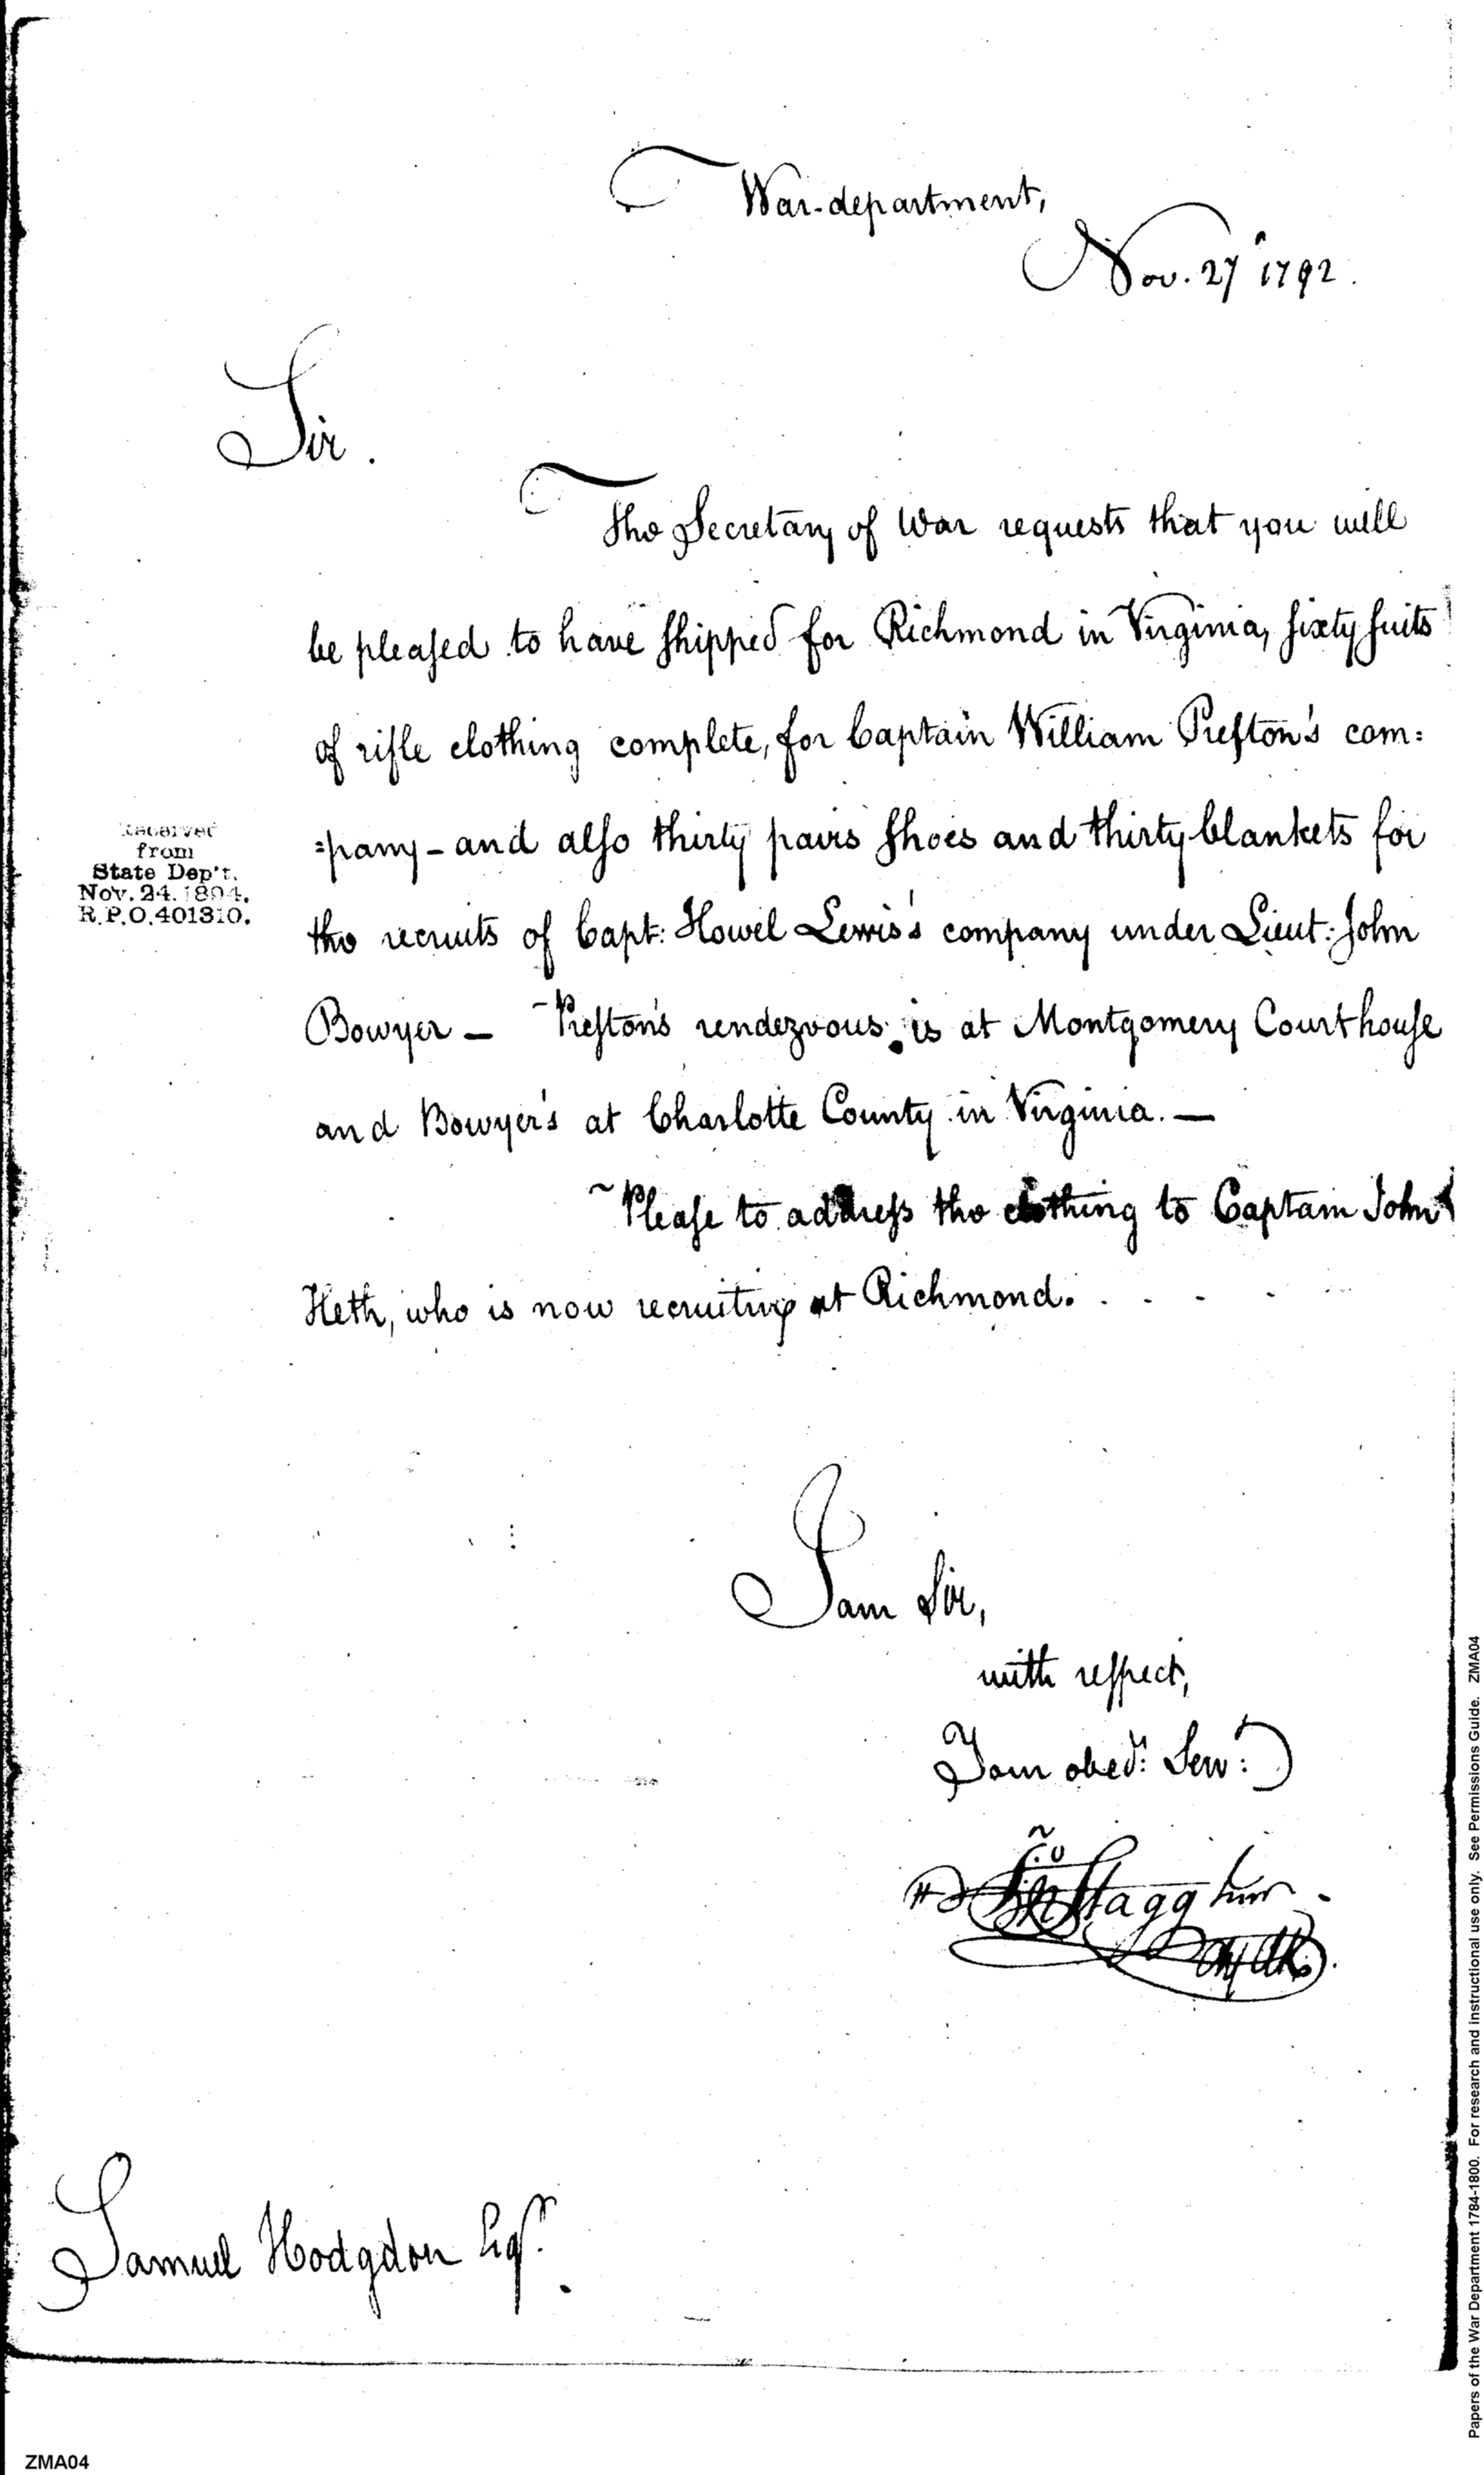 War-department,
Nov. 27 1792.
Sir.
The Secretary of War requests that you will
be pleased to have shipped for Richmond in Virginia, sixty suits
of rifle clothing complete, for Captain William Preston's com:
:pany - and also thirty pairs shoes and thirty blankets for
the recruits of Capt: Howel Lewis's company under Lieut: John
Bowyer — Preston's rendezvous is at Montgomery Courthouse
and Bowyer's at Charlotte County in Virginia. —
Please to address the clothing to Captain John
Heth, who is now recruiting at Richmond.
I am Sir,
with respect,
Your obed: Serv:
Jno Stagg Junr
Samuel Hodgdon Esqr.
Received
from
State Dep't.
Nov. 24. 1894.
R.P.O. 401310.
Papers of the War Department 1784-1800. For research and instructional use only. See Permissions Guide. ZMA04
ZMA04